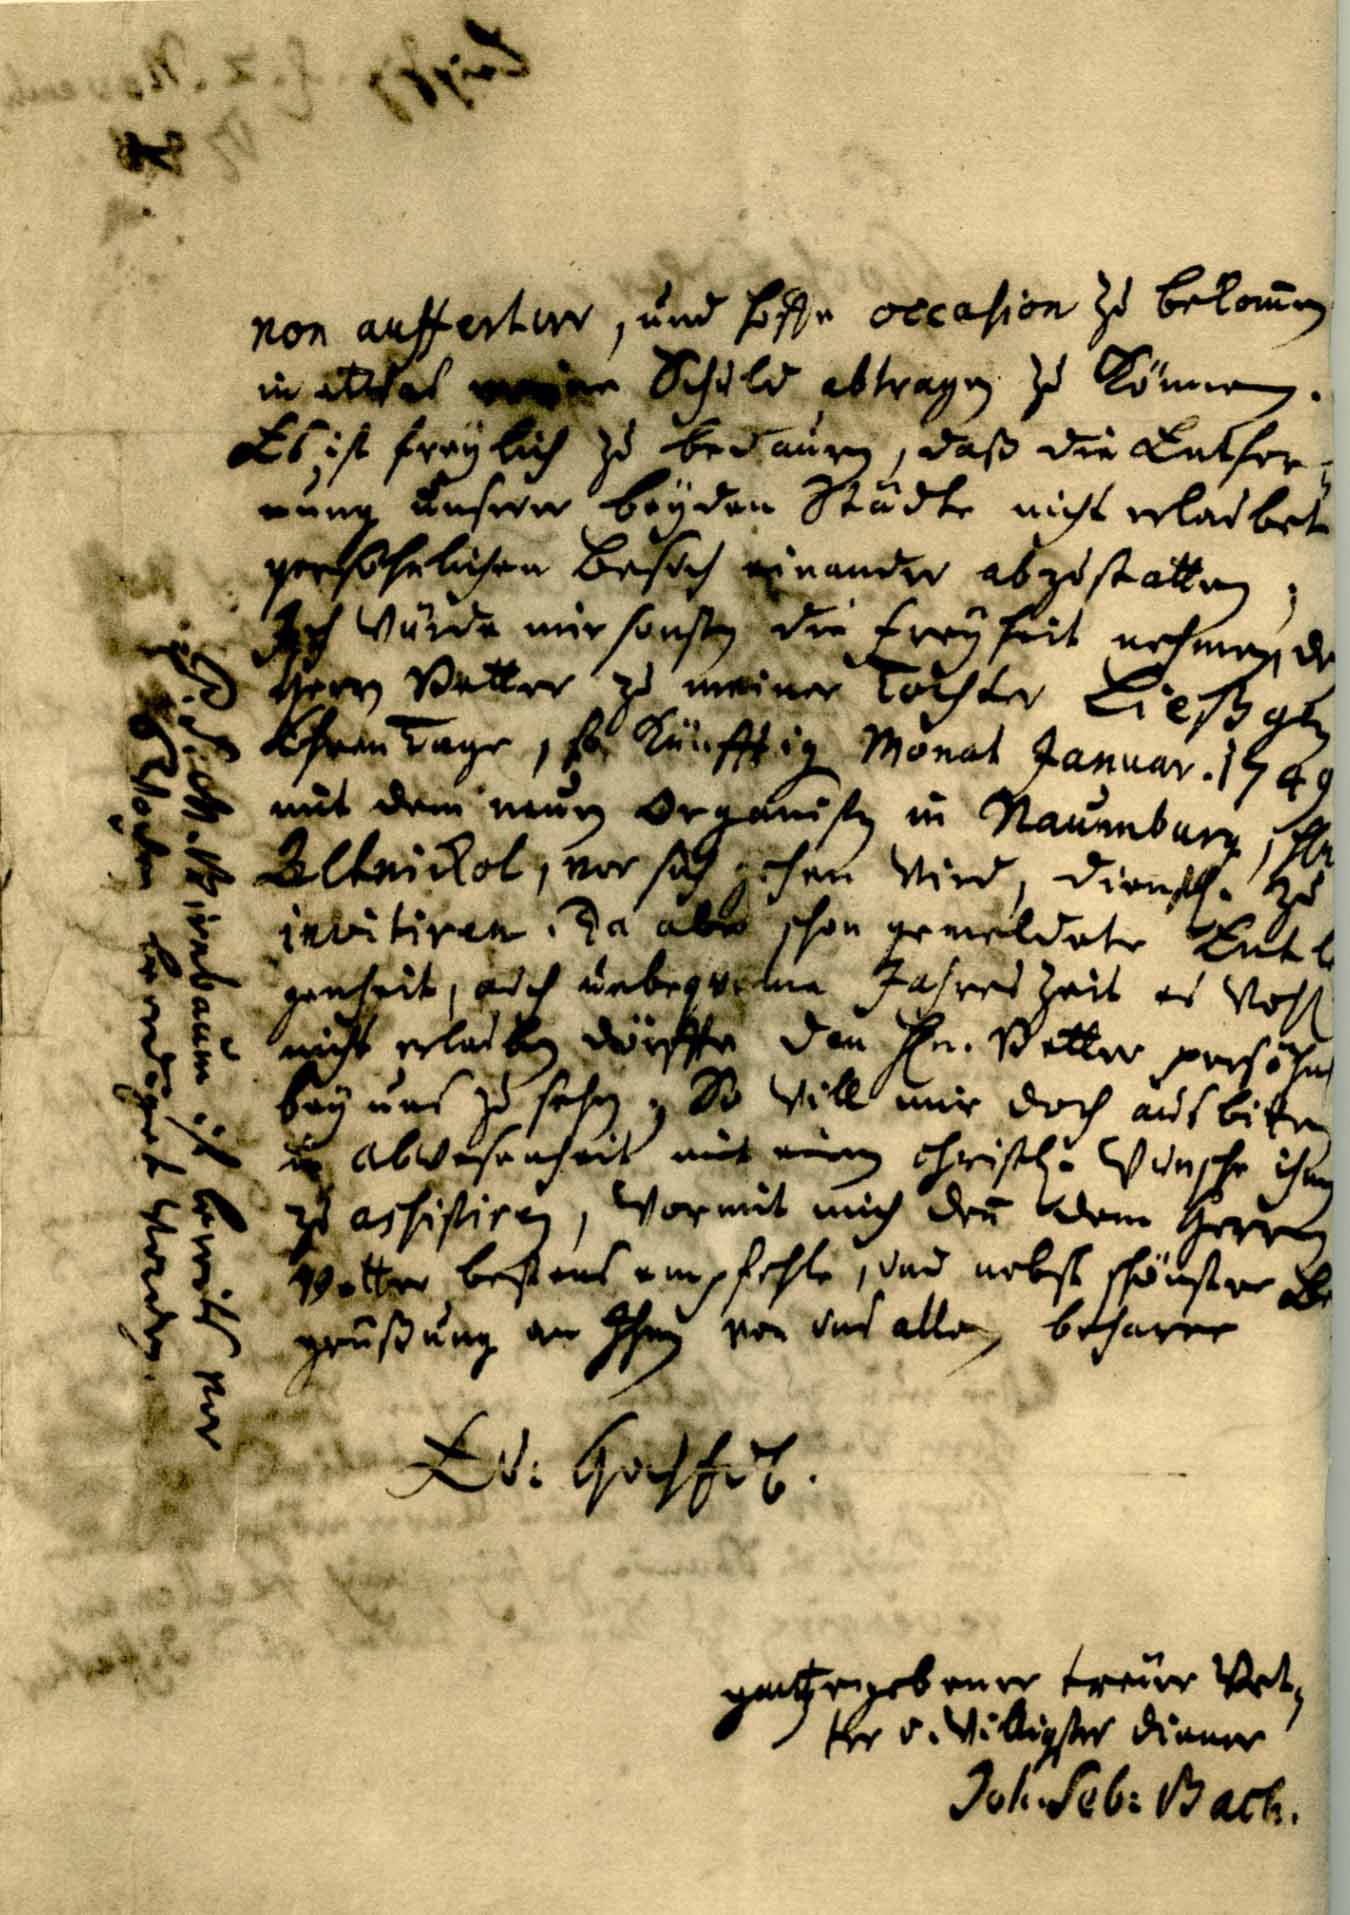 non aufferirn, und hoffe occasion zu bekom̄en
in etwas meine Schuld abtragen zu können.
Es ist freylich zu bedauren, daß die Entfer-
nung unserer beyden Städte nicht erlaubet
persöhnlichen Besuch einander abzustatten;
Ich würde mir sonsten die Freyheit nehmen, de
Herrn Vetter zu meiner Tochter Ließgen
Ehren Tage, so künfftig Monat Januar. 1749
mit dem neuen Organisten in Naumburg, Hn
Altnickol, vor sich gehen wird, dienstl. zu
invitiren. Da aber schon gemeldete Entle
genheit, auch unbeqveme Jahres Zeit es wohl
nicht erlauben dörffte den Hn. Vetter persöhn
bey uns zu sehen; So will mir doch ausbitten
in abwesenheit mit einem christl. Wunsche ihnen
zu assistiren, wormit mich den̄ dem Herrn
Vetter bestens empfehle, und nebst schönster Be
grüßung an Ihnen von uns allen beharre
Ew: HochEdl.
gantz ergebener treüer Vet-
ter u. willigster diener
Joh. Seb: Bach.
M. Birnbaum ist bereits vor
6 Wochen beerdiget worden.